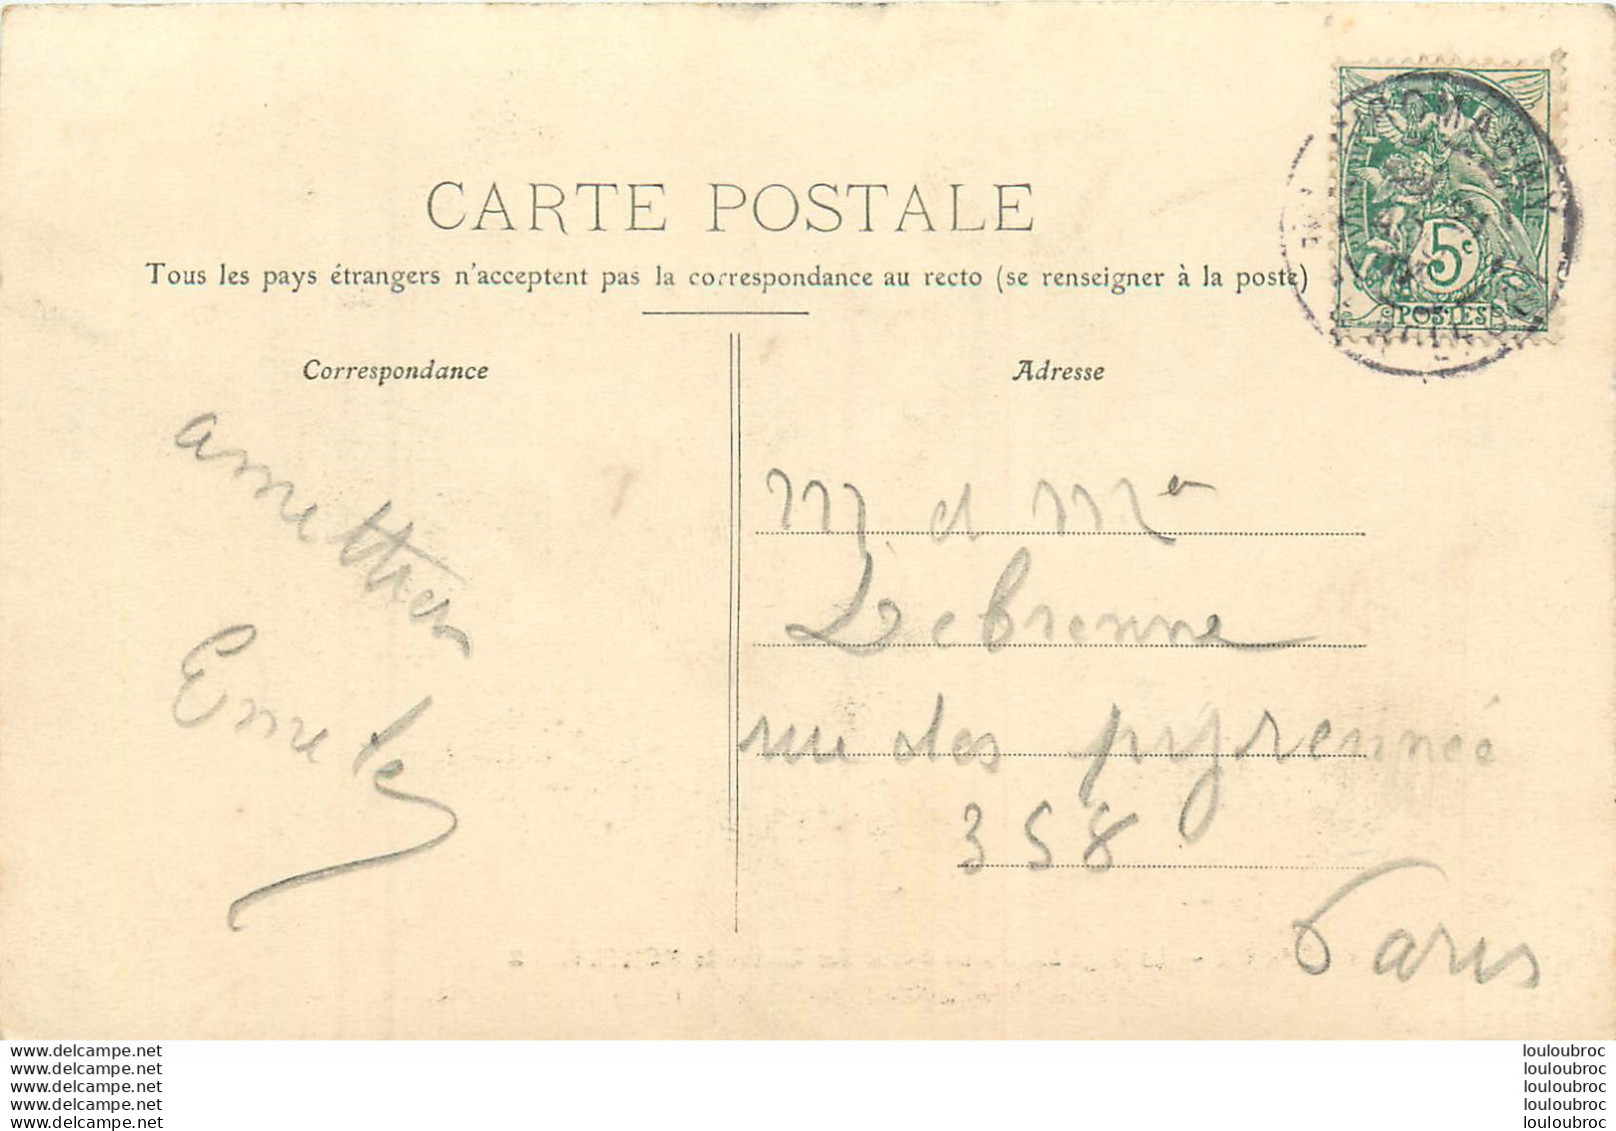 CARTE POSTALE
Tous les pays étrangers n'acceptent pas la correspondance au recto (se renseigner à la poste)
Correspondance
Adresse
5c
POSTES
amettier
M et Me
Lebrenne
rue des pyrenneé
358
Paris
www.delcampe.net
www.delcampe.net
www.delcampe.net
www.delcampe.net
www.delcampe.net
louloubroc
louloubroc
louloubroc
louloubroc
louloubroc